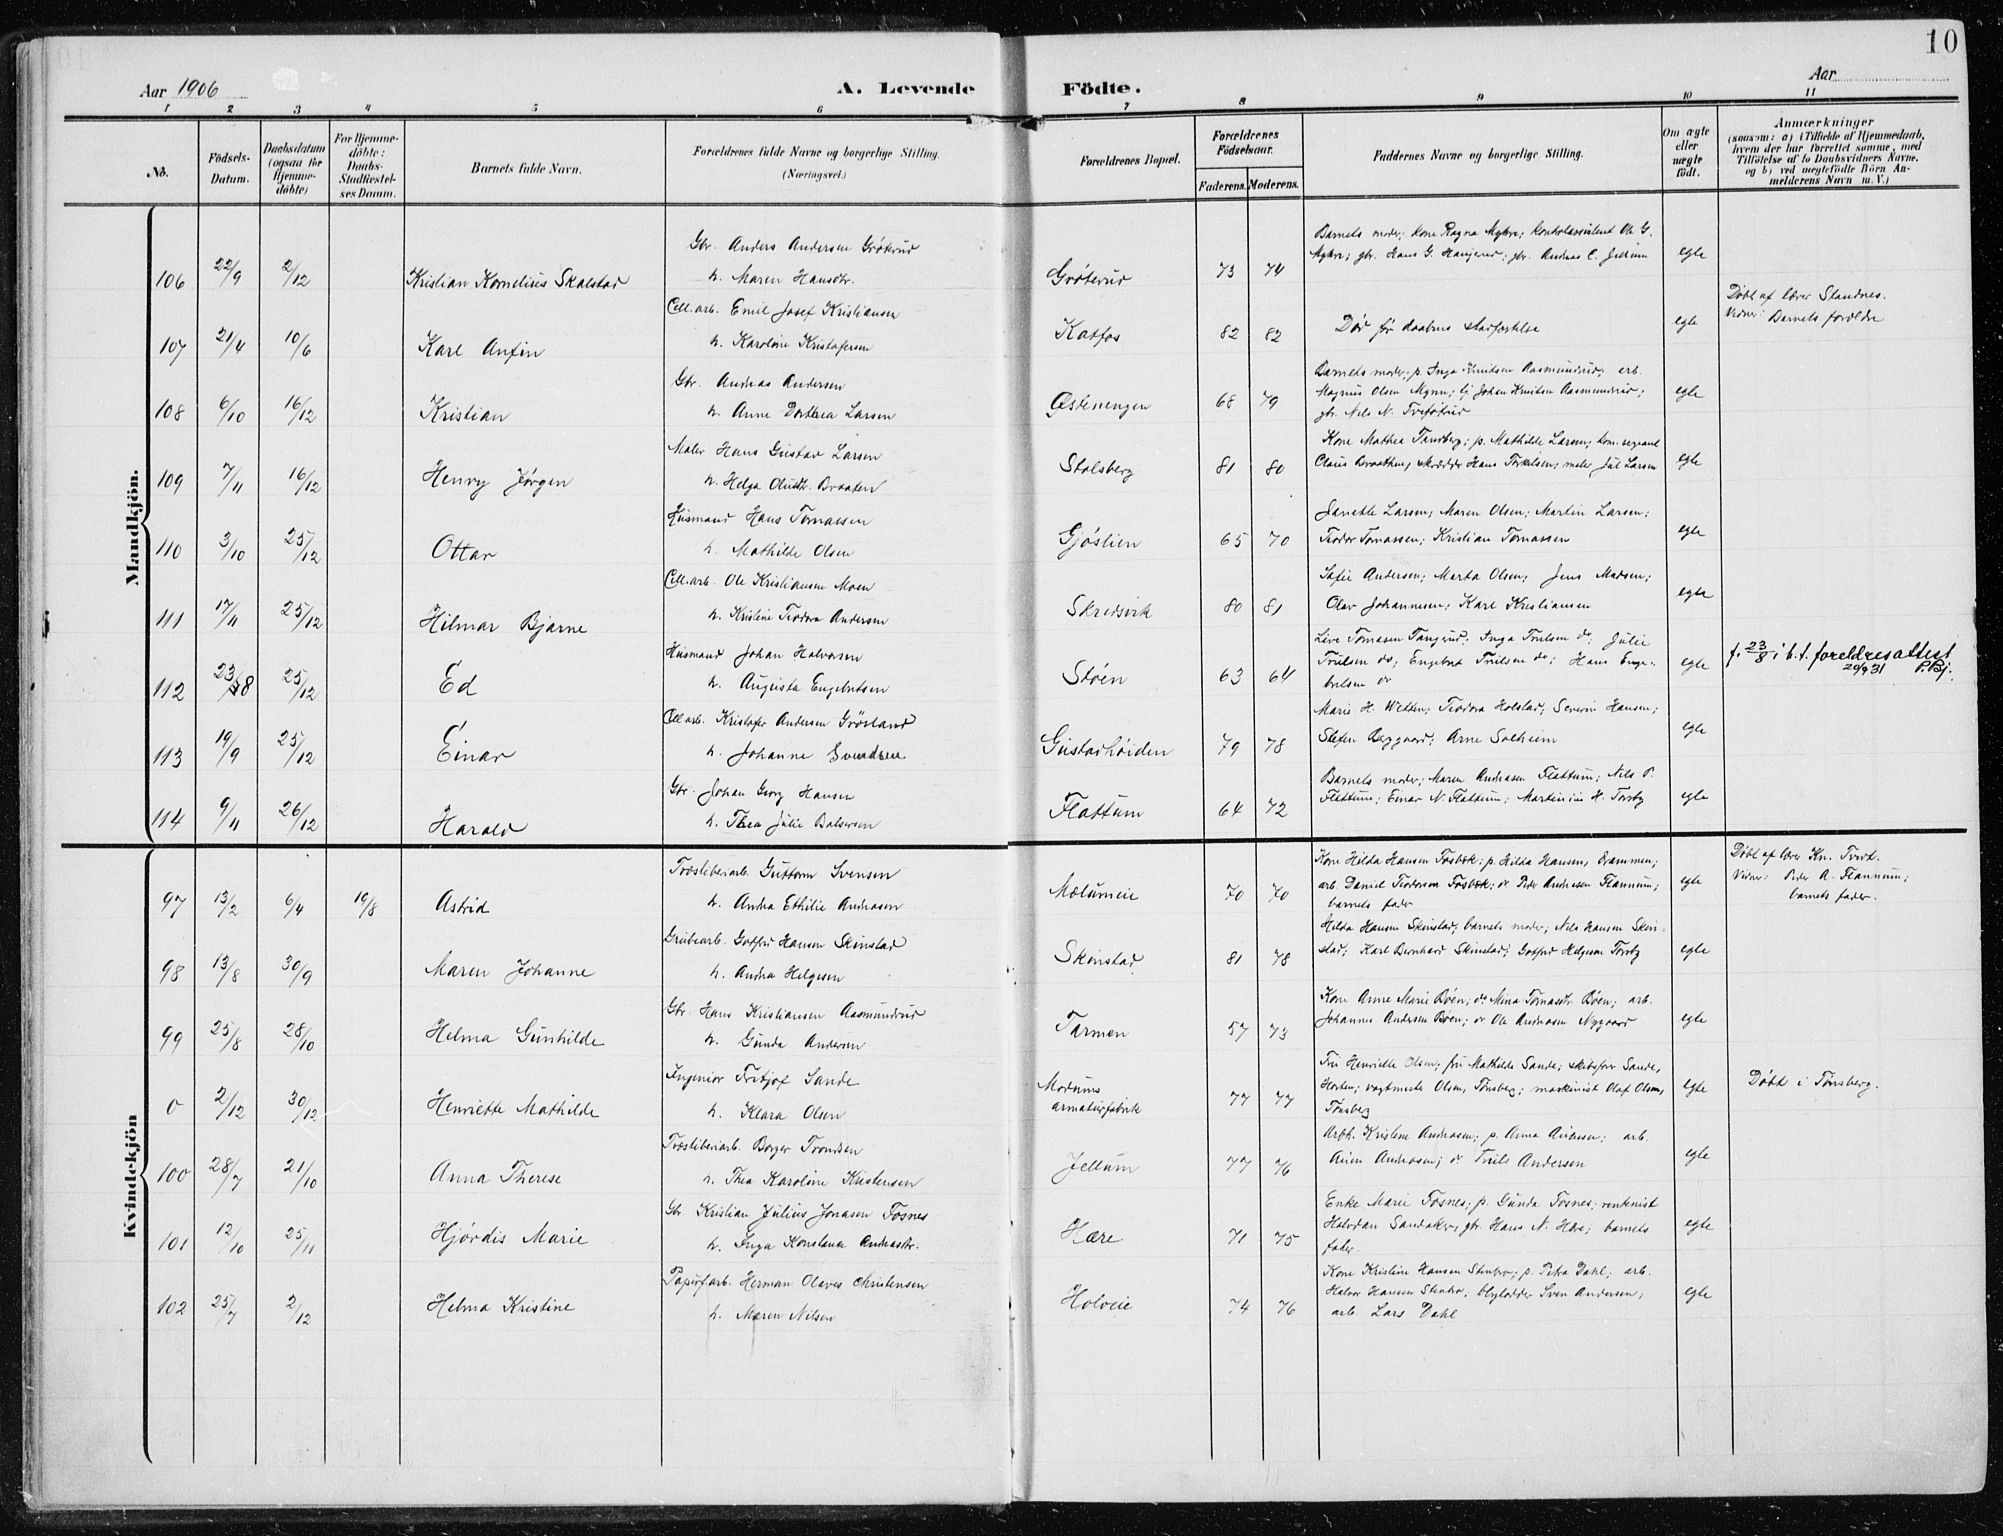 10
Aar 1906
A. Levende Födte.
Aar
1 2 3 4 5 6 7 8 9 10 11
No.
Födsels-
Datum.
Daabsdatum
(ogsaa for
Hjemme-
döbte)
For Hjemme-
döbte:
Daabs-
Stadfæstel-
ses Datum.
Barnets fulde Navn.
Forældrenes fulde Navne og borgerlige Stilling.
(Næringsvei.)
Forældrenes Bopæl.
Forældrenes
Födselsaar.
Faderens. Moderens.
Faddernes Navne og borgerlige Stilling.
Om ægte
eller
uægte
födt.
Anmærkninger
(saasom: a) i Tilfælde af Hjemmedaab,
hvem der har forrettet samme, med
Tilföielse af to Daabsvidners Navne.
og b) ved uægtefödte Börn An-
melderens Navn m. V.)
Mandkjön.
106 22/9 2/12 Kristian Kornelius Skalstad
Gbr. Anders Andersen Grøterud
h. Maren Hansdtr.
Grøterud 73 74
Barnets moder; kone Ragna Myhre; kontrolassistent Ole G.
Myhre; gbr. Hans G. Haugerud; gbr. Andreas C. Jellum
egte
107 21/4 10/6 Karl Anfin
Cell.arb. Emil Josef Kristiansen
h. Karoline Kristofersen
Katfos 82 82
Død før daabens stadfæstelse
egte
Døbt af lærer Standnes.
Vidner: Barnets forældre
108 6/10 16/12 Kristian
Gbr. Andreas Andersen
h. Anne Dorthea Larsen
Østenengen 68 79
Barnets moder; p. Inga Knutsen Aasmundrud; arb.
Magnus Olsen Myrn; lj Johan Knutsen Aasmundrud;
gbr. Nils N. Tveføtrud
egte
109 7/11 16/12 Henry Jørgen
Maler Hans Gustav Larsen
h. Helga Olufdtr. Braaten
Stalsberg 81 80
Kone Mathea Tandberg; p. Mathilde Larsen; kom.sergeant
Claus Braathen, skrædder Hans Torkelsen; maler Jul Larsen
egte
110 3/10 25/12 Ottar
Husmand Hans Tomassen
h. Mathilde Olsen
Gjøslien 65 70
Janette Larsen; Maren Olsen; Martin Larsen;
Teodor Tomassen; Kristian Tomassen
egte
111 17/11 25/12 Hilmar Bjarne
Cell.arb. Ole Kristiansen Moen
h. Kristine Teodora Andersen
Skredsvik 80 81
Sofie Andersen; Marta Olsen; Jens Madsen;
Olav Johannesen; Karl Kristiansen
egte
112 23/8 25/12 Ed
Husmand Johan Halvorsen
h. Augusta Engebretsen
Støen 63 64
Live Tomasen Tangerud; Inga Truelsen do; Julie
Truelsen do; Engebret Truelsen do; Hans Enge-
bretsen do
egte
f. 23/8 i h.t. foreldresattest
29/9 31 P. Bj.
113 19/9 25/12 Einar
Cell.arb. Kristofer Andersen Grøsland
h. Johanne Svendsen
Gustadhøiden 79 78
Marie H. Wetten; Teodora Holstad; Severin Hansen;
Stefen Berggaard; Arne Solheim
egte
114 9/11 26/12 Harald
Gbr. Johan Georg Hansen
h. Thea Julie Balsersen
Flattum 64 72
Barnets moder; Maren Andreasen Flattum; Nils P.
Flattum; Einar N. Flattum; Martinius H. Torsby
egte
Kvindekjön
97 13/2 6/4 19/8 Astrid
Træsliberiarb. Guttorm Svensen
h. Andra Ethilie Andreasen
Mælumeie 70 70
Kone Hilda Hansen Fosbæk; p. Hilda Hansen, Drammen;
arb. Daniel Teodorsen Fosbæk; do Peder Andreasen Flannum;
barnets fader
egte
Døbt af lærer Kn. Tveit.
Vidner: Peder A. Flannum;
barnets fader.
98 13/8 30/9 Maren Johanne
Grubearb. Gotfred Hansen Skinstad
h. Andrea Helgesen
Skinstad 81 78
Hilda Hansen Skinstad, barnets moder; Nils Hansen Skin-
stad; Karl Bernhard Skinstad; Gotfred Helgesen Torsby
egte
99 25/8 28/10 Helma Gunhilde
Gbr. Hans Kristiansen Aasmundrud
h. Gunda Andersen
Tarmen 57 73
Kone Anne Marie Bøen; do Mina Tomasdtr Bøen; arb.
Johannes Andersen Bøen; do Ole Andreasen Nygaard
egte
0 2/12 30/12 Henriette Mathilde
Ingeniør Fritjof Sande
h. Klara Olsen
Modums
armaturfabrik 77 77
Fru Henriette Olsen; fru Mathilde Sande; skibsfører Sande,
Horten; vagtmester Olsen, Tønsberg; maskinist Olaf Olsen,
Tønsberg
egte
Døbt i Tønsberg.
100 28/7 21/10 Anna Therese
Træsliberiarb. Borger Trondsen
h. Thea Karoline Kristensen
Jellum 77 76
Arbh. Kristine Andreasen; p. Anna Andersen; arb.
Andreasen; do Truls Andersen
egte
101 12/10 25/11 Hjørdis Marie
Gbr. Kristian Julius Jonasen Fosnes
h. Inga Konstance Andreasdtr.
Hære 71 75
Enke Marie Fosnes; p. Gunda Fosnes; rentenist
Halvdan Sandaker, gbr. Hans N. Hære; barnets
fader.
egte
102 25/7 2/12 Helma Kristine
Papirfarb. Herman Olaves Christensen
h. Maren Nilsen
Holveie 74 76
Kone Kristine Hansen Stenbro; p. Petra Dahl; arb.
Halvor Hansen Stenbro, blylodder Sven Andersen;
arb. Lars Dahl
egte